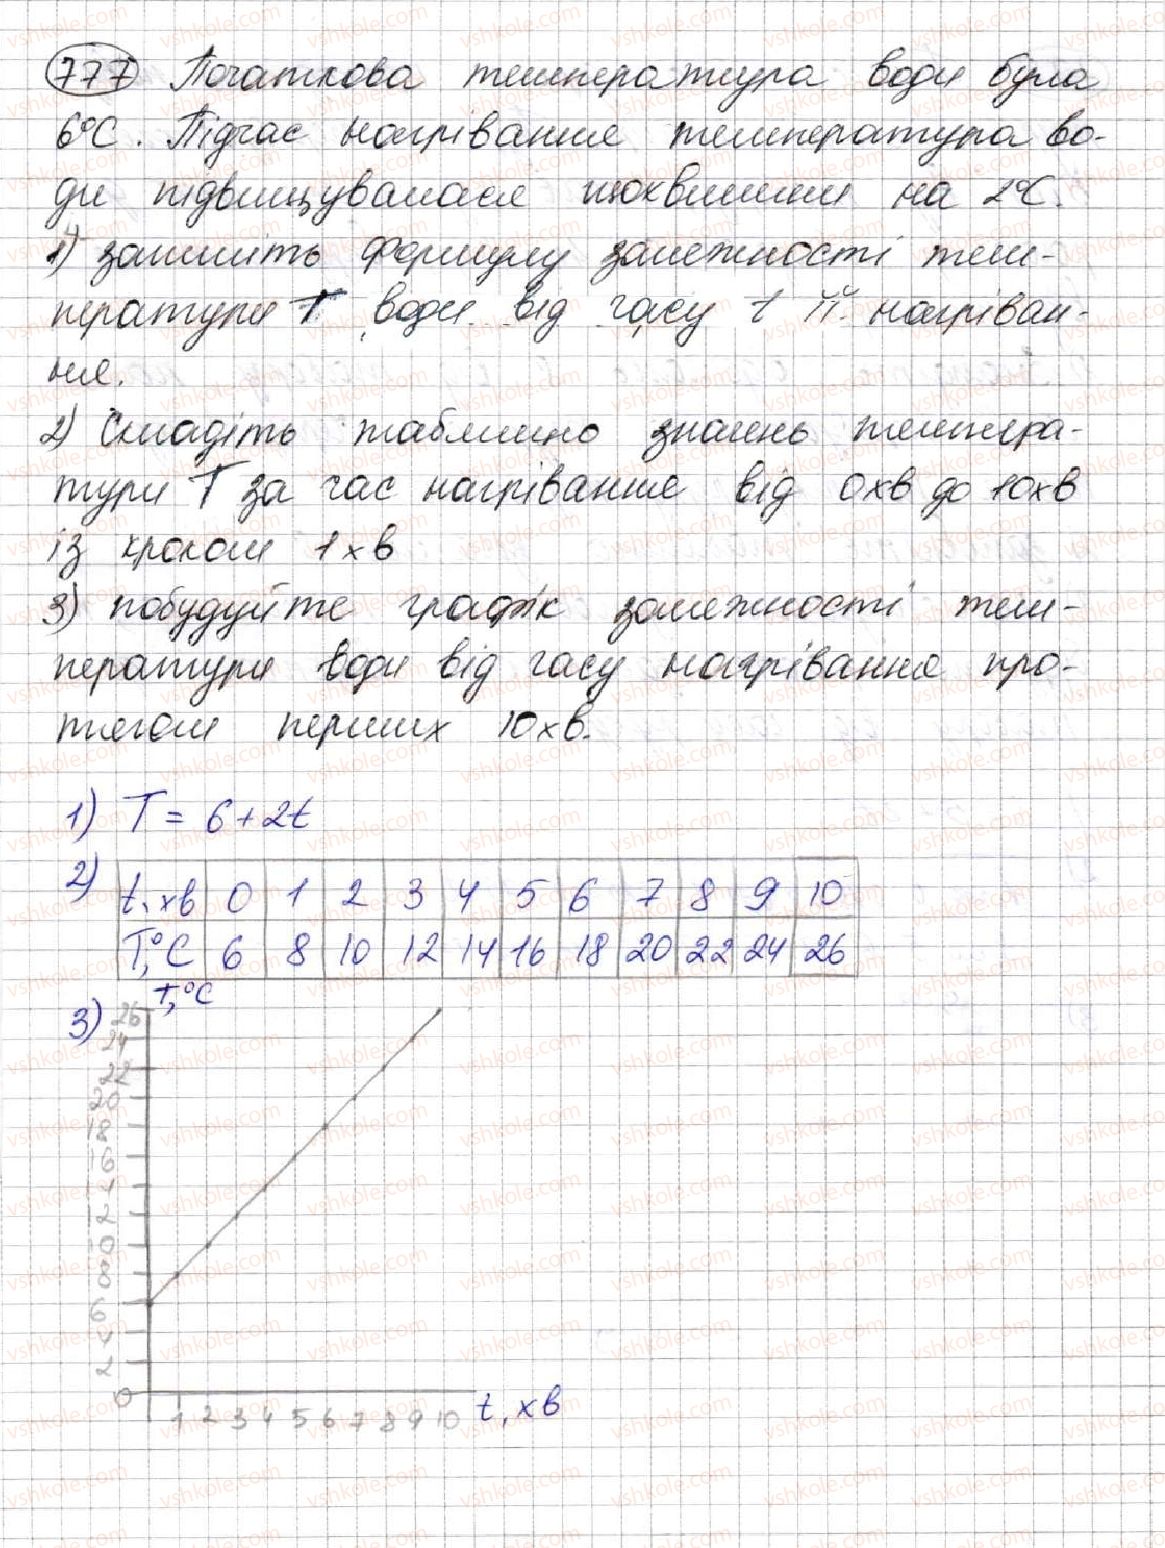 777 Початкова температура води була
6°С. Підчас нагрівання температура во-
ди підвищувалася щохвилини на 2°С.
1) запишіть формулу залежності тем-
ператури Т води від часу t її нагріван-
ня.
2) Складіть таблицю значень темпера-
тури Т за час нагрівання від 0хв до 10хв
із кроком 1хв
3) побудуйте графік залежності тем-
ператури води від часу нагрівання про-
тягом перших 10хв.
1) T = 6+2t
2) t, хв 0 1 2 3 4 5 6 7 8 9 10
T,°C 6 8 10 12 14 16 18 20 22 24 26
3) T,°C
26
24
22
20
18
16
14
12
10
8
6
4
2
0
1 2 3 4 5 6 7 8 9 10 t, хв